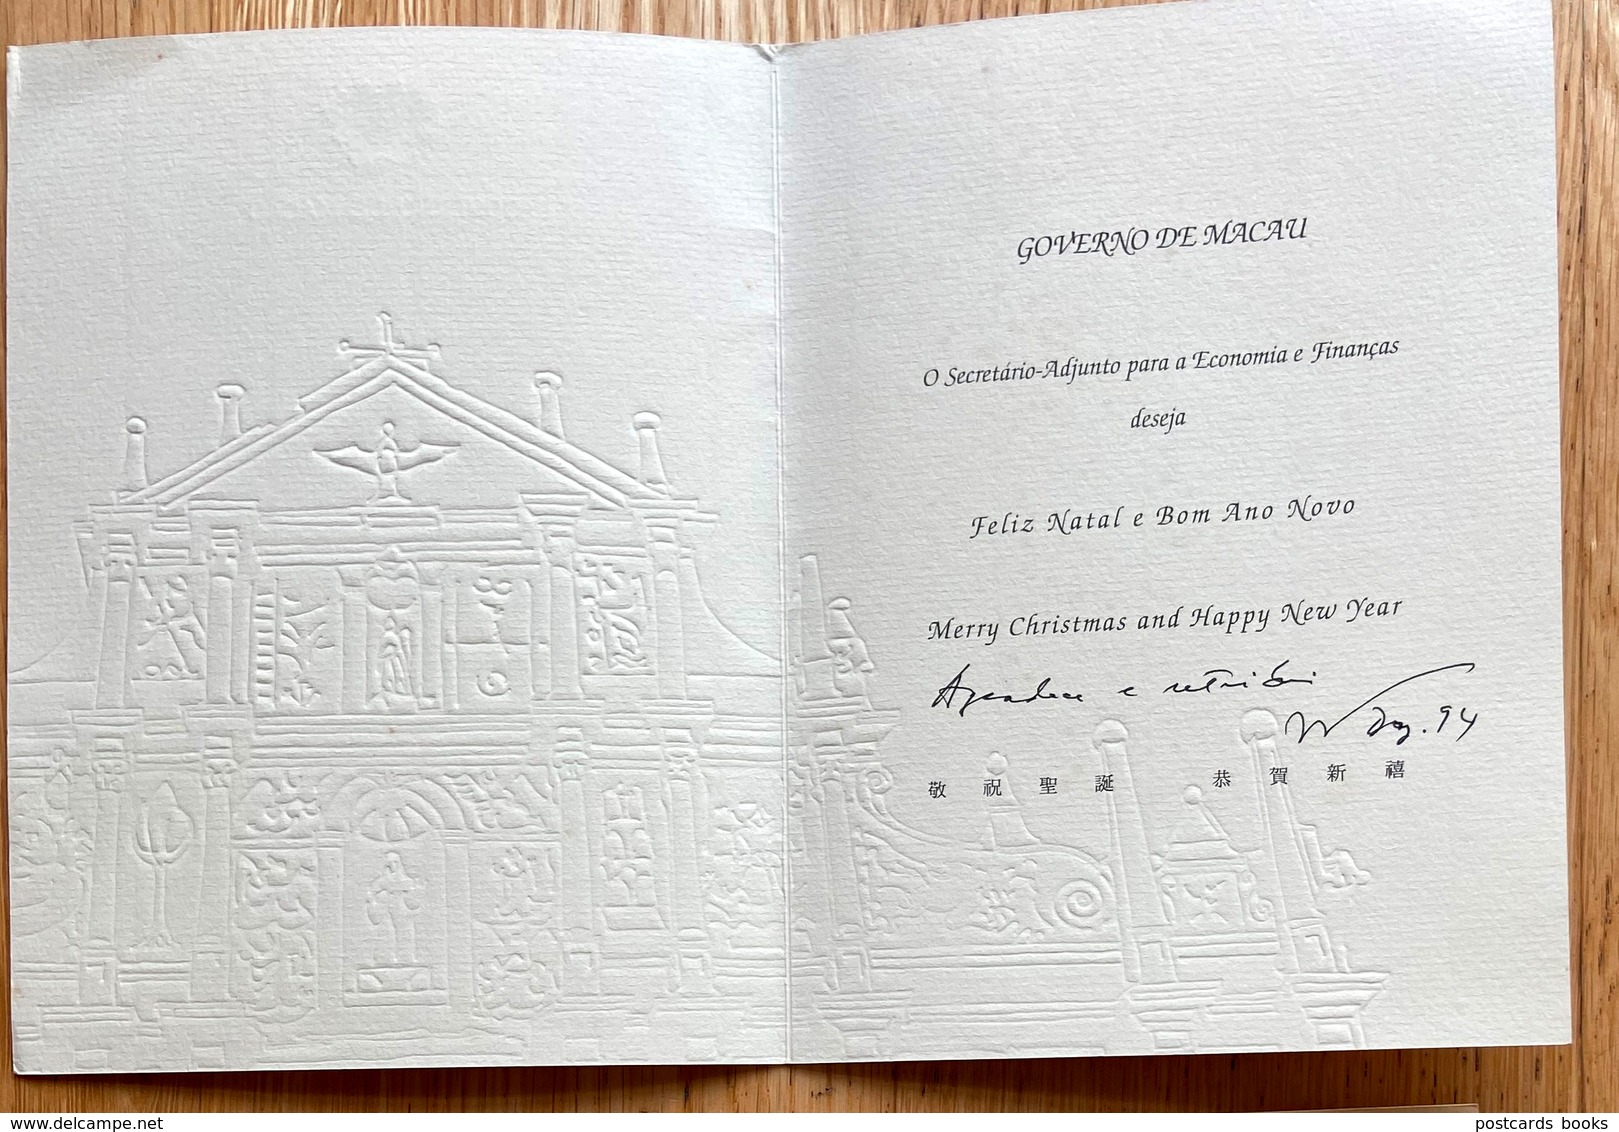 GOVERNO DE MACAU
O Secretário-Adjunto para a Economia e Finanças
deseja
Feliz Natal e Bom Ano Novo
Merry Christmas and Happy New Year
Agradece e retribui
Dez. 94
敬祝聖誕 恭賀新禧
www.delcampe.net
postcards books